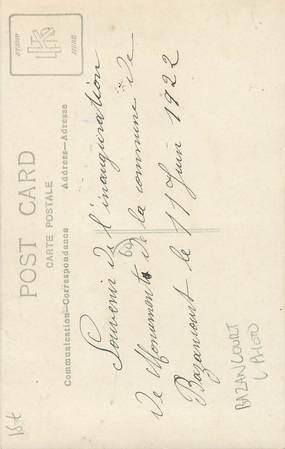 POST CARD
CARTE POSTALE
Communication—Correspondance
Address—Adresse
Souvenir de l'inauguration
de Monument de la commune de
Bazancourt le 11 Juin 1922
60
BAZANCOURT
C PHOTO